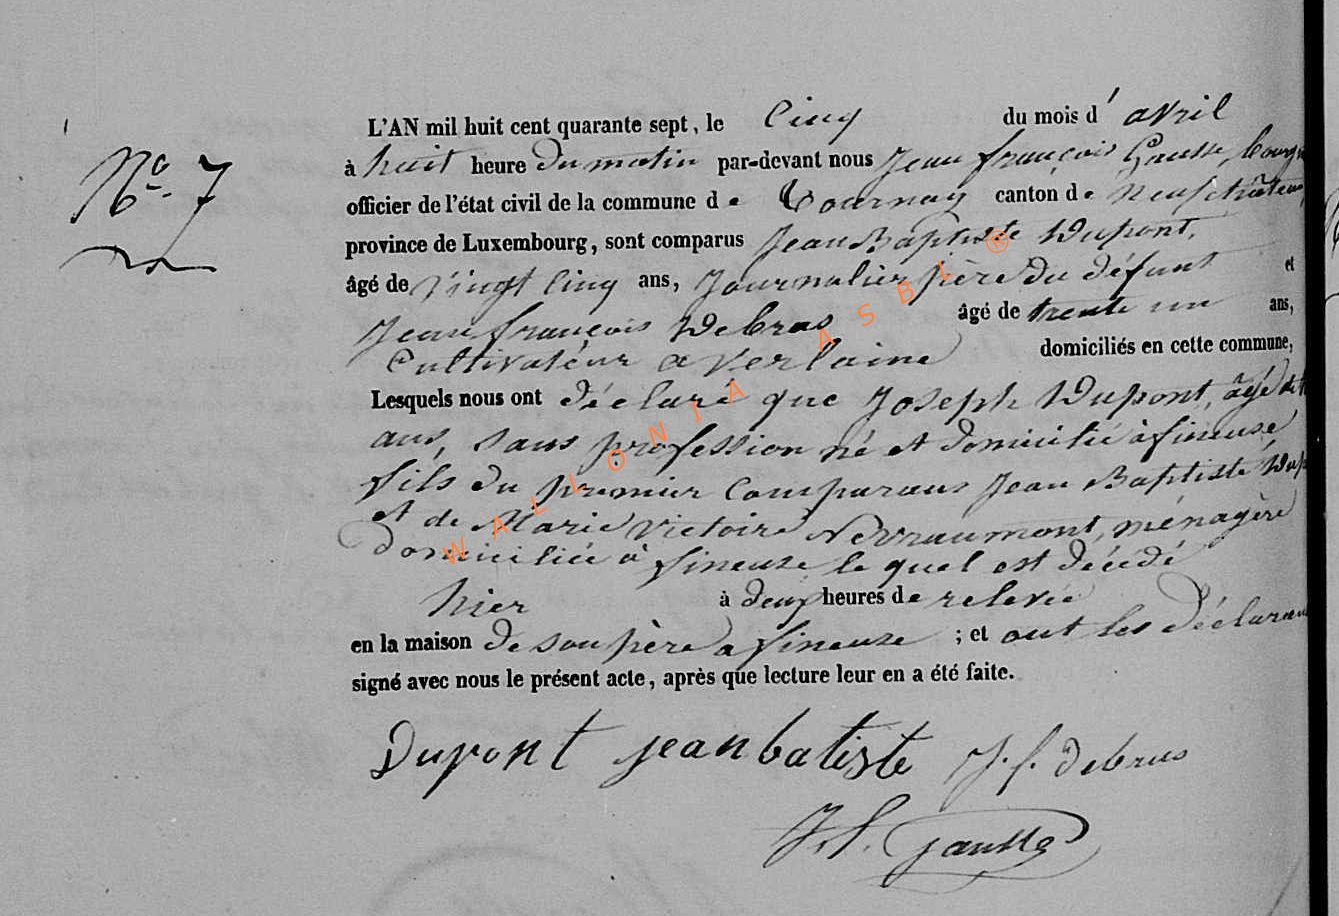 L'AN mil huit cent quarante sept, le Cinq du mois d' avril
No. 7
à huit heure du matin par-devant nous Jean françois Gausse, bourg
officier de l'état civil de la commune de Tournay canton de Neufchâteau,
province de Luxembourg, sont comparus Jean Baptiste Dupont,
âgé de Vingt Cinq ans, Journalier père du défunt et
Jean françois Debras âgé de trente un ans,
Cultivateur a Verlaine domiciliés en cette commune,
Lesquels nous ont déclaré que Joseph Dupont, âgé de
ans, sans profession né et domicilié à fineuse
fils du premier Comparans Jean Baptiste Dup
et de Marie Victoire Nevraumont, ménagère
domiciliée à fineuse le quel est décédé
hier à deux heures de relevée
en la maison de son père a fineuse ; et ont les déclarans
signé avec nous le présent acte, après que lecture leur en a été faite.
Dupont jean batiste J. f. debras
J. f. Gausse
WALLONIA ASBL ®